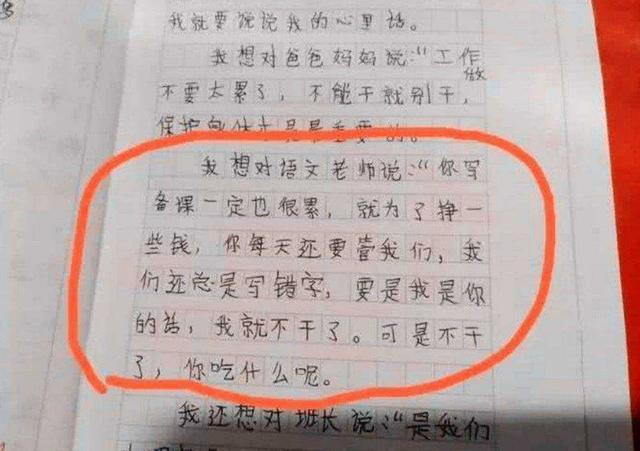 我就要说说我的心里话。
我想对爸爸妈妈说:“工作
做
不要太累了，不能干就别干，
保护身体才是最重要的。
我想对语文老师说:“你写
备课一定也很累，就为了挣一
些钱，你每天还要管我们，我
们还总是写错字，要是我是你
的话，我就不干了。可是不干
了，你吃什么呢。
我还想对班长说:“是我们